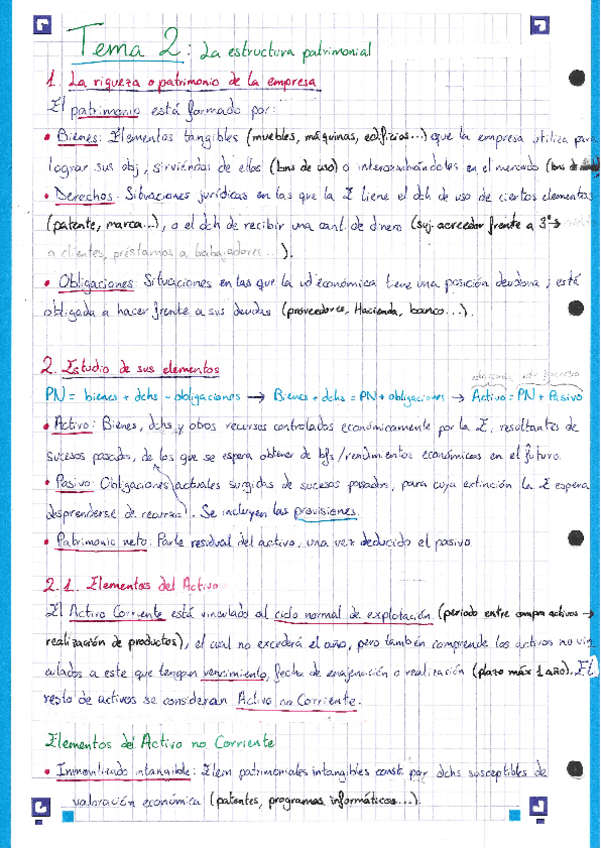 Tema 2: La estructura patrimonial
1. La riqueza o patrimonio de la empresa
El patrimonio está formado por:
• Bienes: Elementos tangibles (muebles, máquinas, edificios...) que la empresa utiliza para
lograr sus obj, sirviéndose de ellos (bns de uso) o intercambiándolos en el mercado (bns de
• Derechos: Situaciones jurídicas en las que la Σ tiene el dch de uso de ciertos elementos
(patente, marca...), o el dch de recibir una cant. de dinero (suj. acreedor frente a 3º→
a clientes, préstamos a trabajadores...).
• Obligaciones: Situaciones en las que la ud económica tiene una posición deudora; está
obligada a hacer frente a sus deudas (proveedores, Hacienda, banco...).
2. Estudio de sus elementos
PN = bienes + dchs - obligaciones → Bienes + dchs = PN + obligaciones → Activo = PN + Pasivo
• Activo: Bienes, dchs y otros recursos controlados económicamente por la Σ, resultantes de
sucesos pasados, de los que se espera obtener de bfs/rendimientos económicos en el futuro.
• Pasivo: Obligaciones actuales surgidas de sucesos pasados, para cuya extinción la Σ espera
desprenderse de recursos. Se incluyen las provisiones.
• Patrimonio neto: Parte residual del activo, una vez deducido el pasivo
2.1. Elementos del Activo
El Activo Corriente está vinculado al ciclo normal de explotación (periodo entre compra activos →
realización de productos), el cual no excederá el año, pero también comprende los activos no vin
culados a este que tengan vencimiento, fecha de enajenación o realización (plazo máx 1 año). El
resto de activos se consideran Activo no Corriente.
Elementos del Activo no Corriente
• Inmovilizado intangible: Elem patrimoniales intangibles const. por dchs susceptibles de
valoración económica (patentes, programas informáticos...).